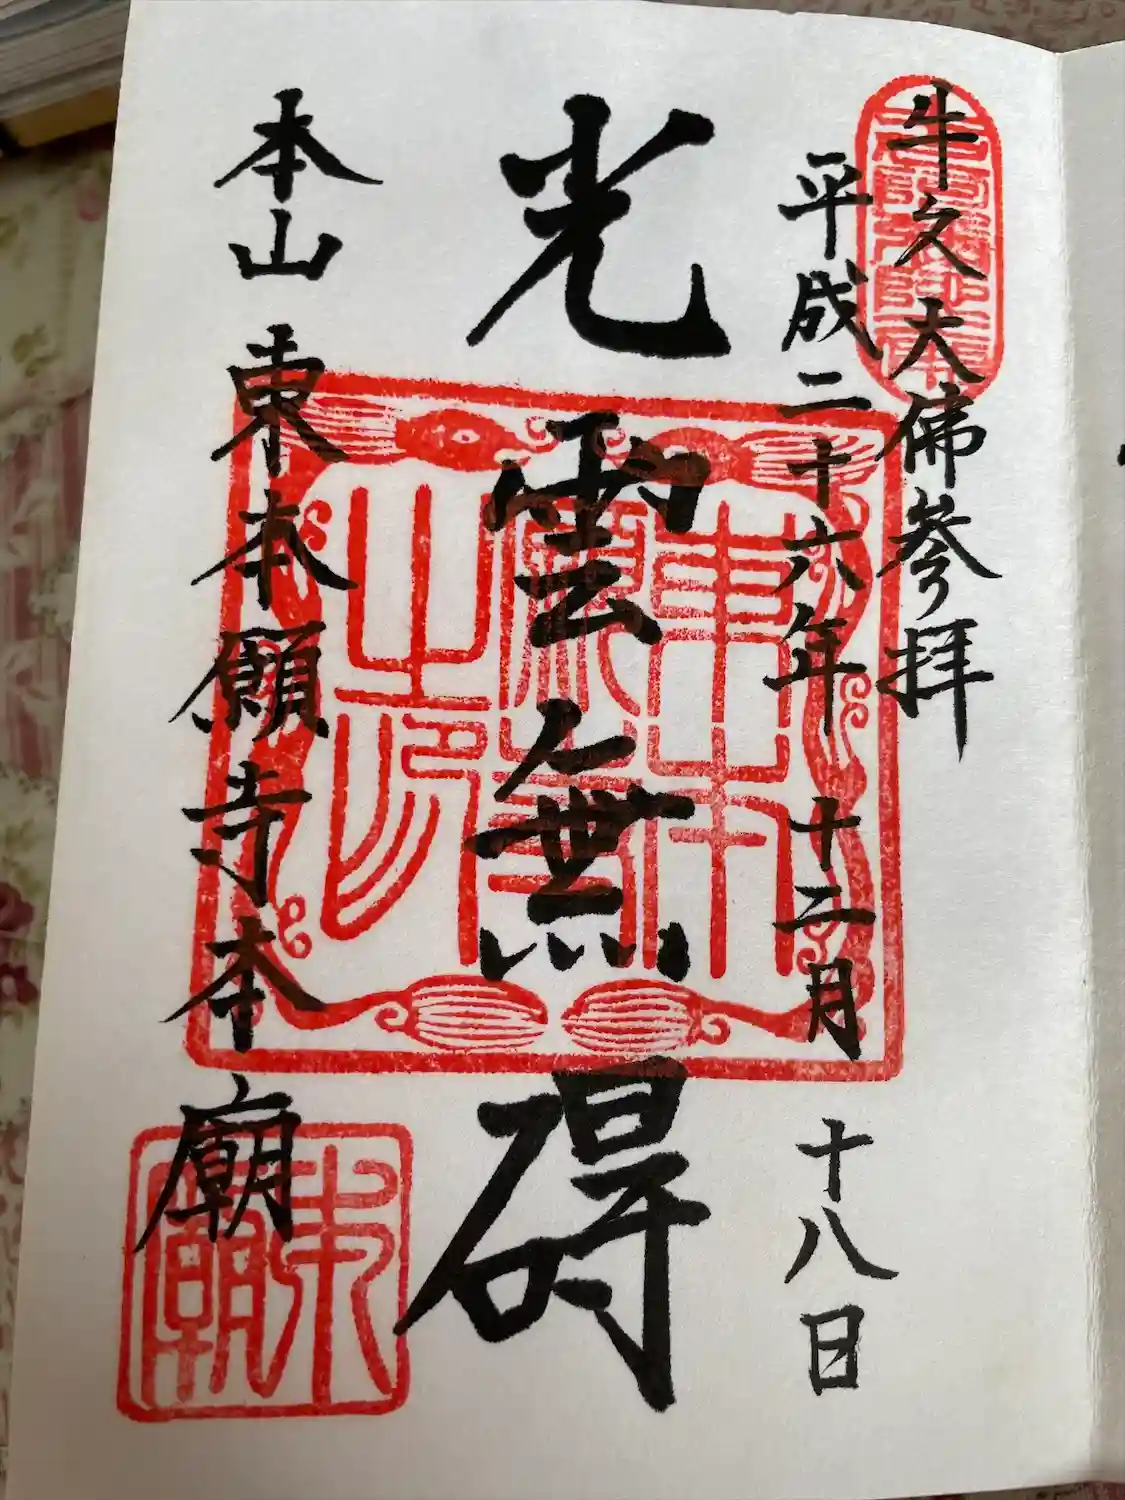 牛久大佛参拝
平成二十六年 十二月 十八日
光雲無碍
本山 東本願寺本廟
東本願寺之印